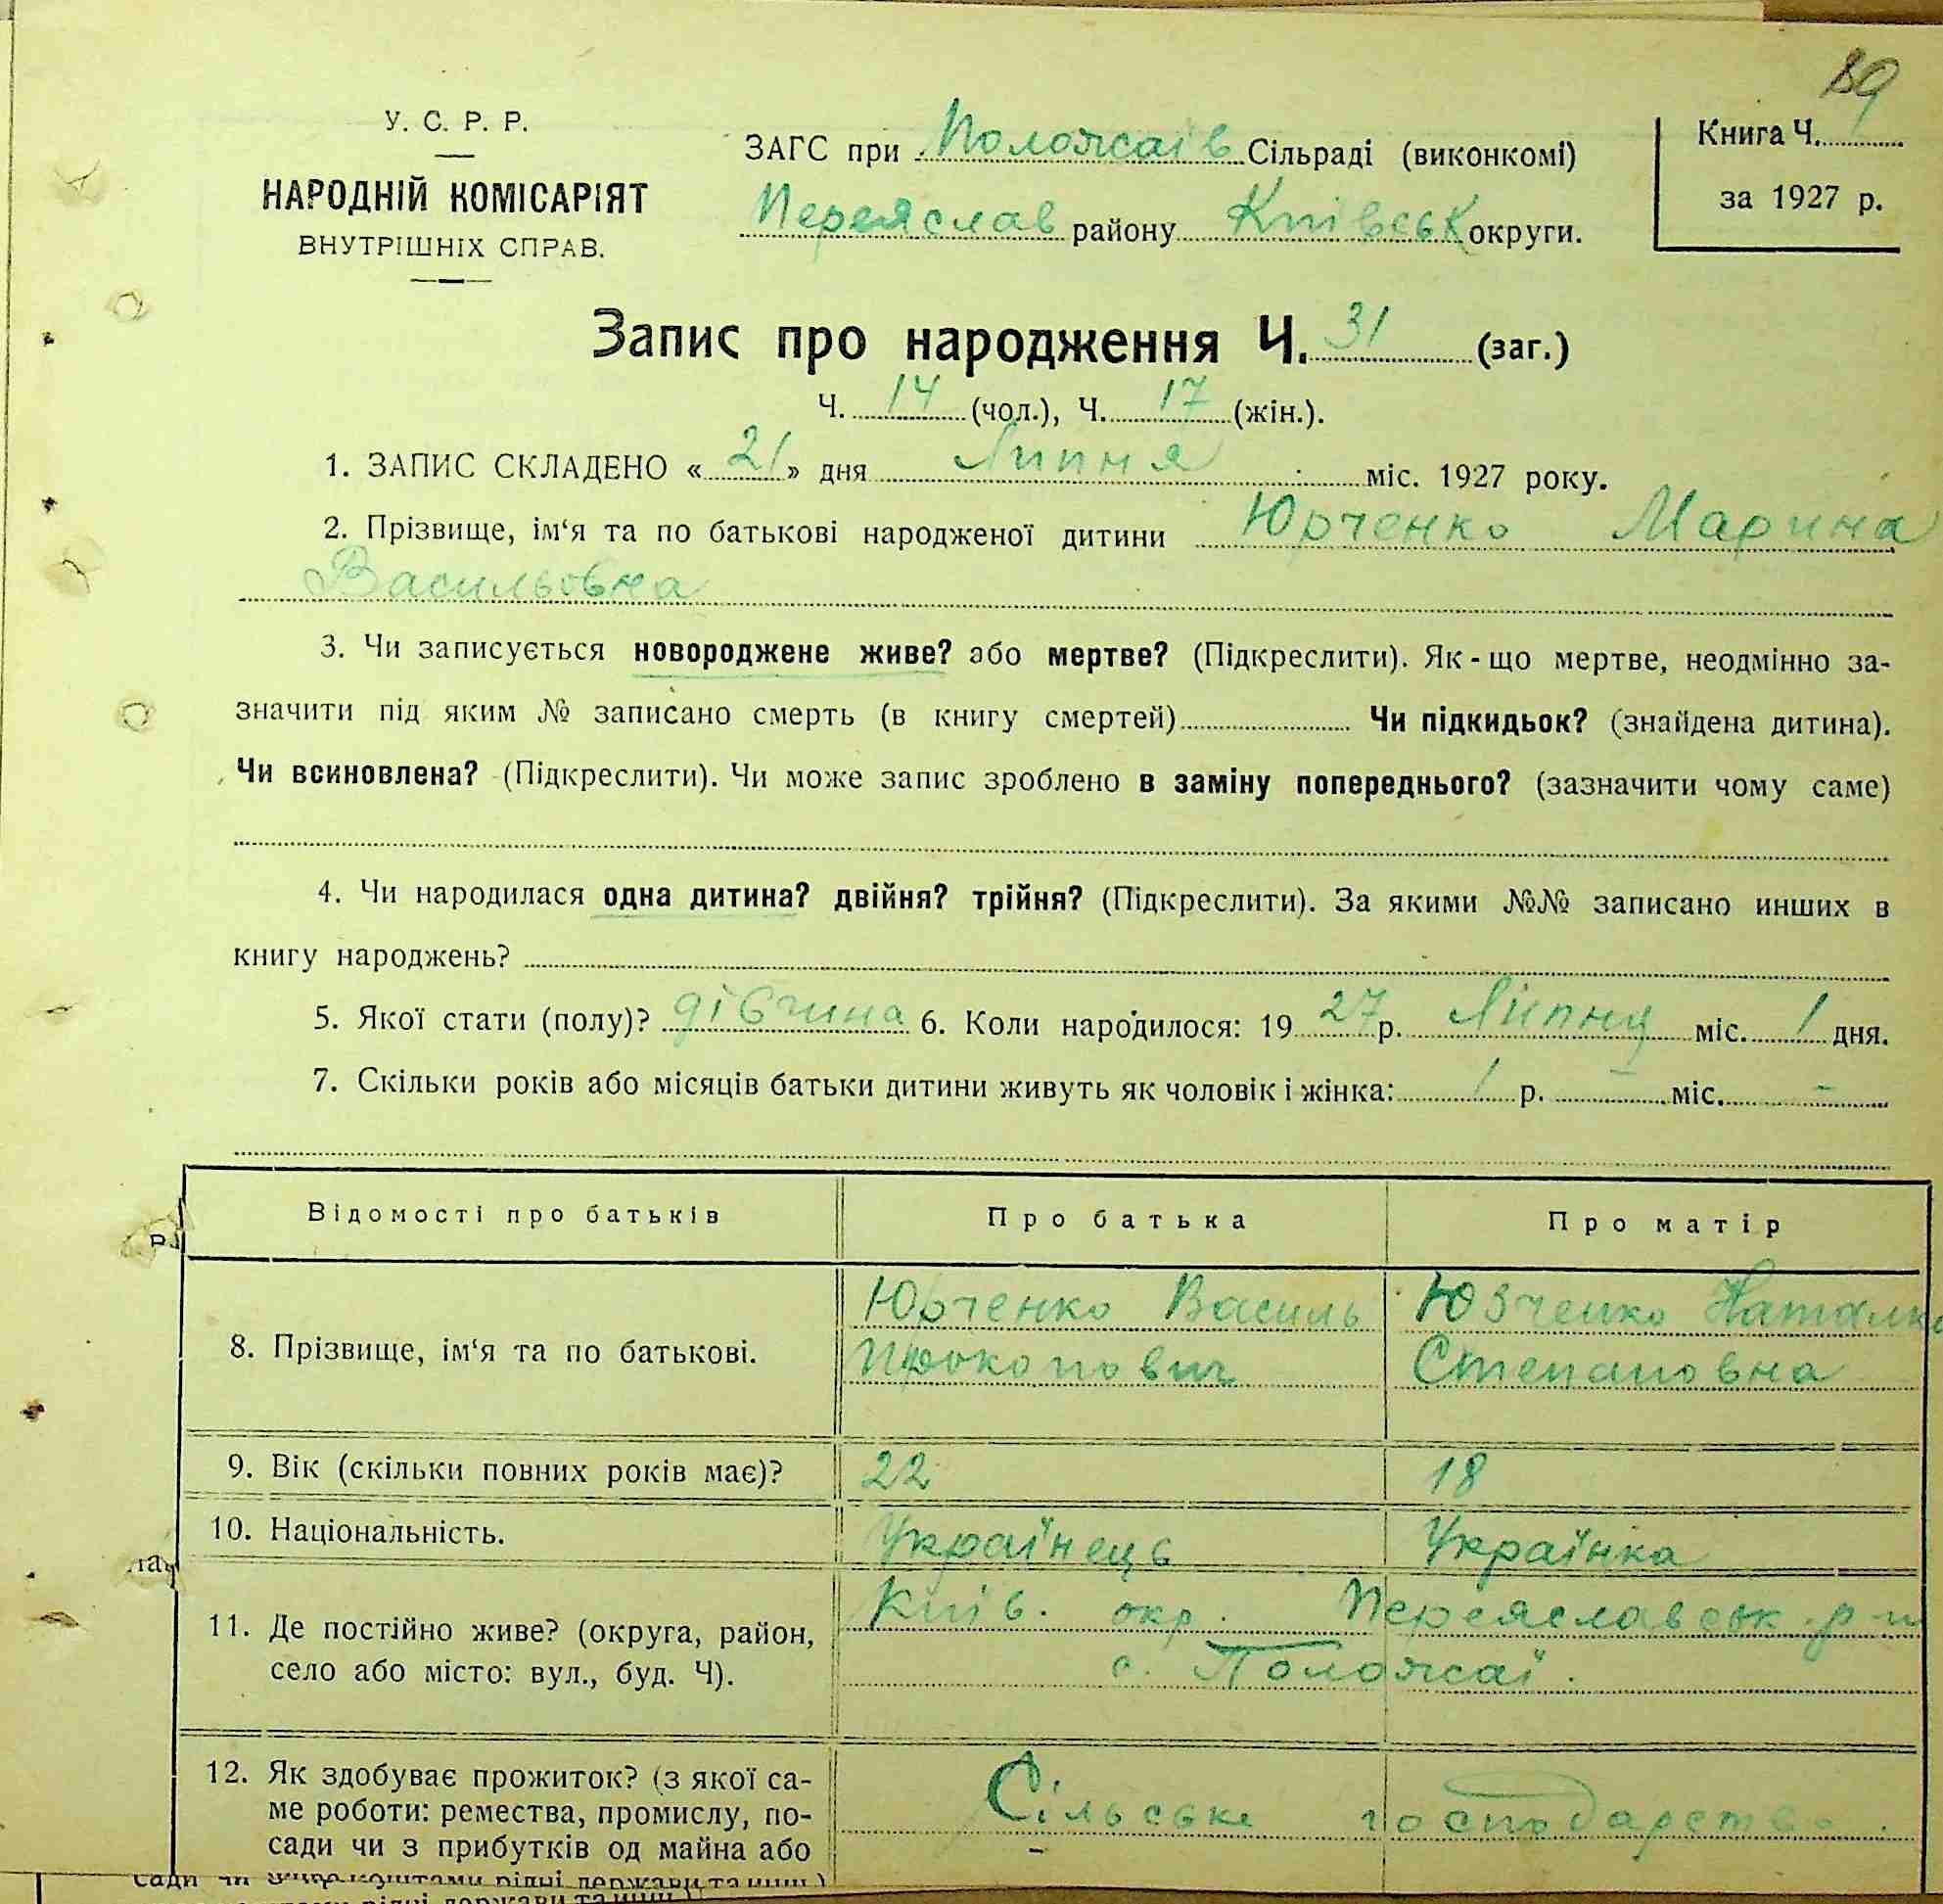 89
У. С. Р. Р.
НАРОДНІЙ КОМІСАРІЯТ
ВНУТРІШНІХ СПРАВ.
ЗАГС при Положаїв Сільраді (виконкомі)
Переяслав району Київськ округи.
Книга Ч.
за 1927 р.
Запис про народження Ч. 31 (заг.)
Ч. 14 (чол.), Ч. 17 (жін.).
1. ЗАПИС СКЛАДЕНО «21» дня Липня міс. 1927 року.
2. Прізвище, ім‘я та по батькові народженої дитини Юрченко Марина
Васильовна
3. Чи записується новороджене живе? або мертве? (Підкреслити). Як-що мертве, неодмінно за-
значити під яким № записано смерть (в книгу смертей) Чи підкидьок? (знайдена дитина).
Чи всиновлена? (Підкреслити). Чи може запис зроблено в заміну попереднього? (зазначити чому саме)
4. Чи народилася одна дитина? двійня? трійня? (Підкреслити). За якими №№ записано инших в
книгу народжень?
5. Якої стати (полу)? дівчина 6. Коли народилося: 19 27 р. Липня міс. 1 дня.
7. Скільки років або місяців батьки дитини живуть як чоловік і жінка: 1 р. - міс. -
Відомості про батьків Про батька Про матір
8. Прізвище, ім‘я та по батькові.
Юрченко Василь
Прокопович
Юрченко Наталка
Степановна
9. Вік (скільки повних років має)? 22 18
10. Національність. Українець Українка
11. Де постійно живе? (округа, район,
село або місто: вул., буд. Ч).
Київ. окр. Переяславськ. р-н
с. Положаї.
12. Як здобуває прожиток? (з якої са-
ме роботи: ремества, промислу, по-
сади чи з прибутків од майна або
Сільське господарство.